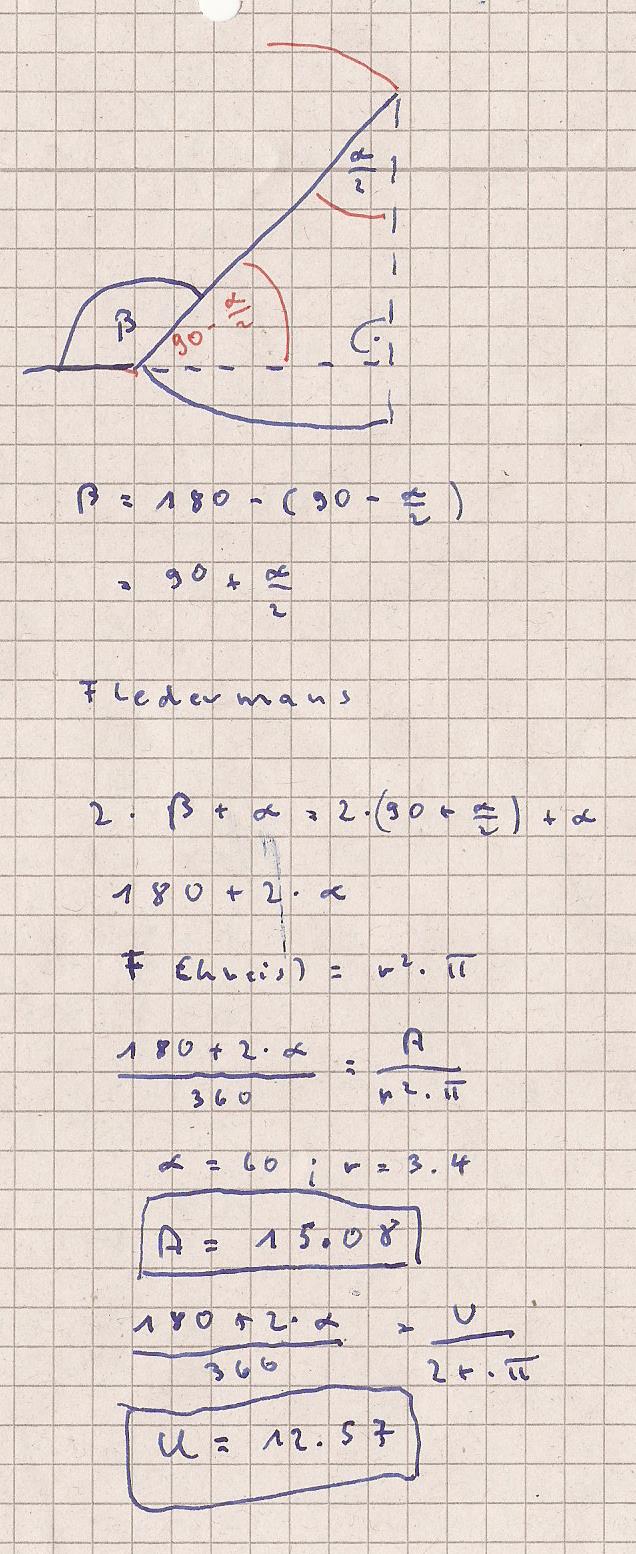 α/2
β
90 - α/2
β = 180 - (90 - α/2)
= 90 + α/2
Fledermaus
2 · β + α = 2·(90 + α/2) + α
180 + 2 · α
F (Kreis) = r² · π
(180 + 2 · α)/360 = A/(r² · π)
α = 60 ; r = 3.4
A = 15.08
(180 + 2 · α)/360 = U/(2r · π)
U = 12.57